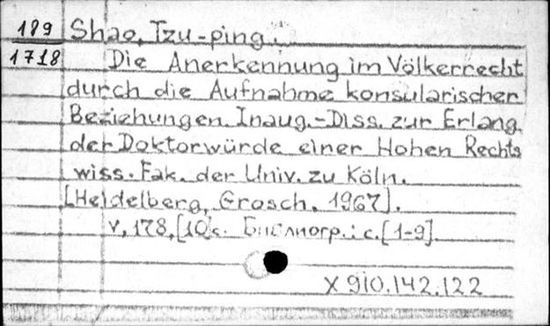 189
1718
Shao, Tzu-ping.
Die Anerkennung im Völkerrecht
durch die Aufnahme konsularischer
Beziehungen. Inaug.-Diss. zur Erlang.
der Doktorwürde einer Hohen Rechts
wiss. Fak. der Univ. zu Köln.
[Heidelberg, Grosch, 1967].
v, 178, [10] с. Библиогр.: с. [1-9].
X 910.142.122